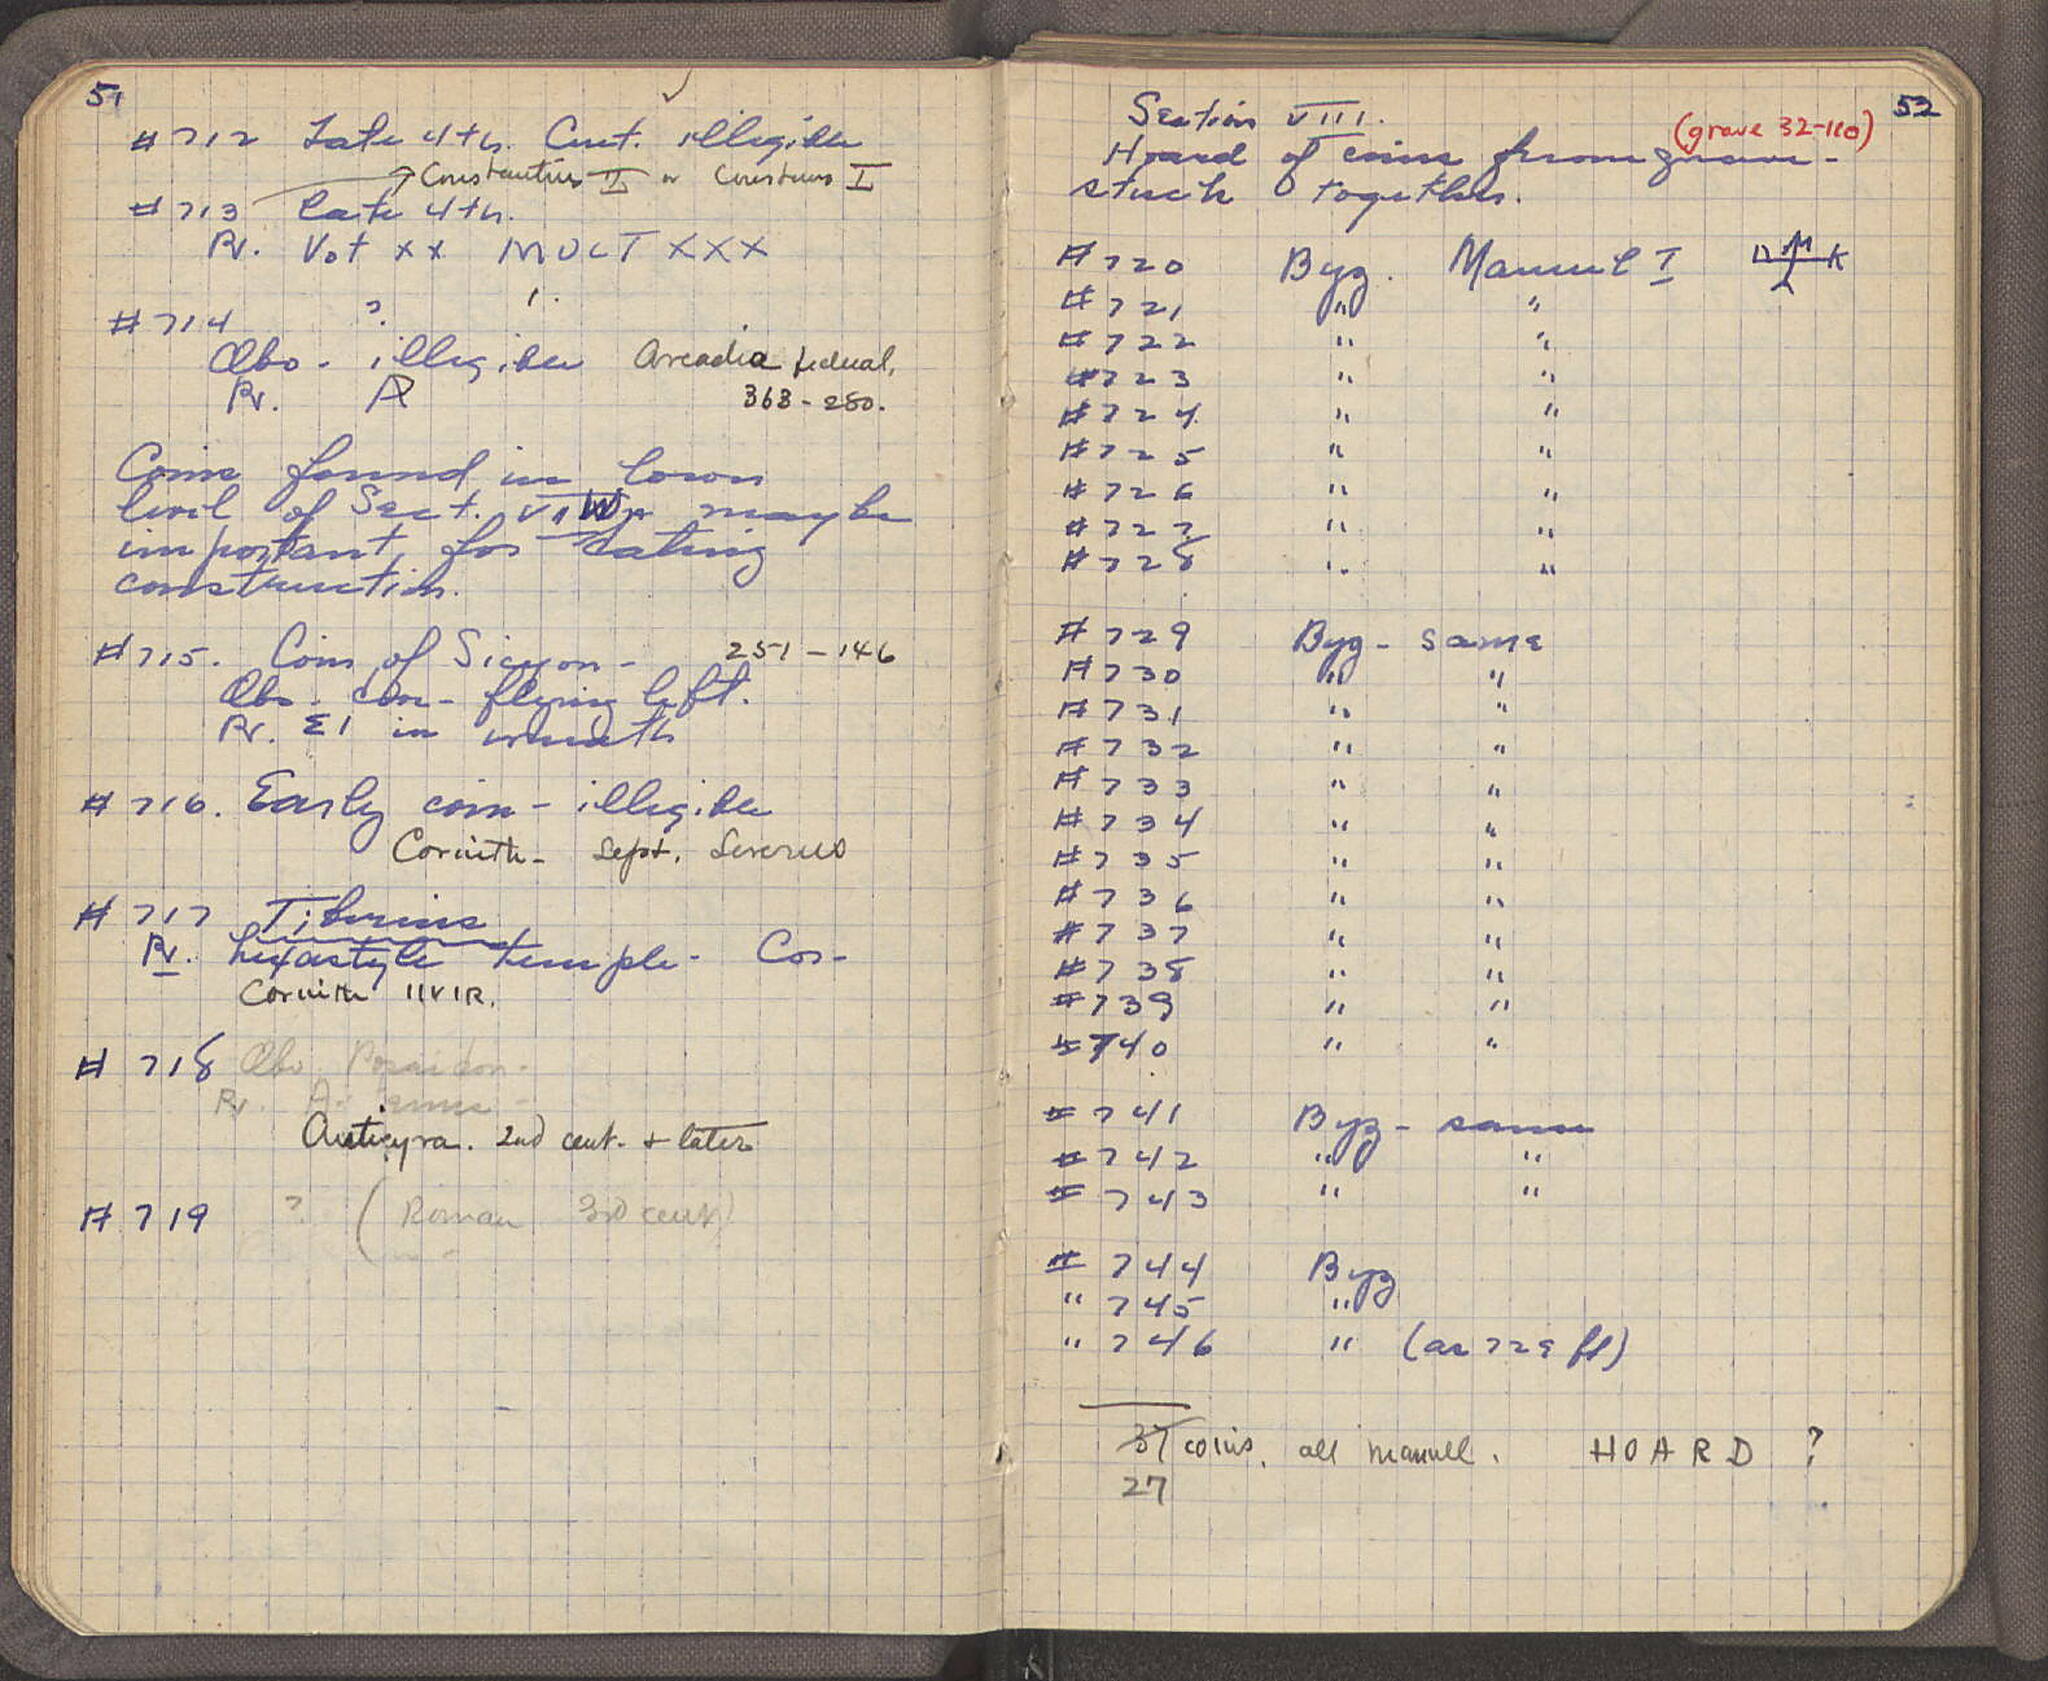 51
#712 Late 4th. Cent. illegible
Constantius II or Constans I
#713 Late 4th.
Rv. Vot XX MULT XXX
#714 ?
Obv - illegible Arcadia federal,
Rv. 363-280.
Coins found in lower
level of Sect. may be
important for dating
construction.
#715. Coin of Sicyon - 251-146
Obv. dove - flying left.
Rv. ΣΙ in wreath
#716. Early coin - illegible
Corinth - Sept. Severus
#717 Tiberius
Rv. hexastyle temple - Cor-
Corinth IIVIR.
#718 Obv. Poseidon -
Rv. Artemis -
Anticyra. 2nd cent. + later
#719 ? (Roman 3rd cent)
52
Section VIII.
(grave 32-110)
Hoard of coins from grave -
stuck together.
#720 Byz. Manuel I
#721 " "
#722 " "
#723 " "
#724 " "
#725 " "
#726 " "
#727 " "
#728 " "
#729 Byz - same
#730 " "
#731 " "
#732 " "
#733 " "
#734 " "
#735 " "
#736 " "
#737 " "
#738 " "
#739 " "
#740 " "
#741 Byz - same
#742 " "
#743 " "
#744 Byz
" 745 "
" 746 " (as 729 ff)
37 coins, all Manuel. HOARD ?
27